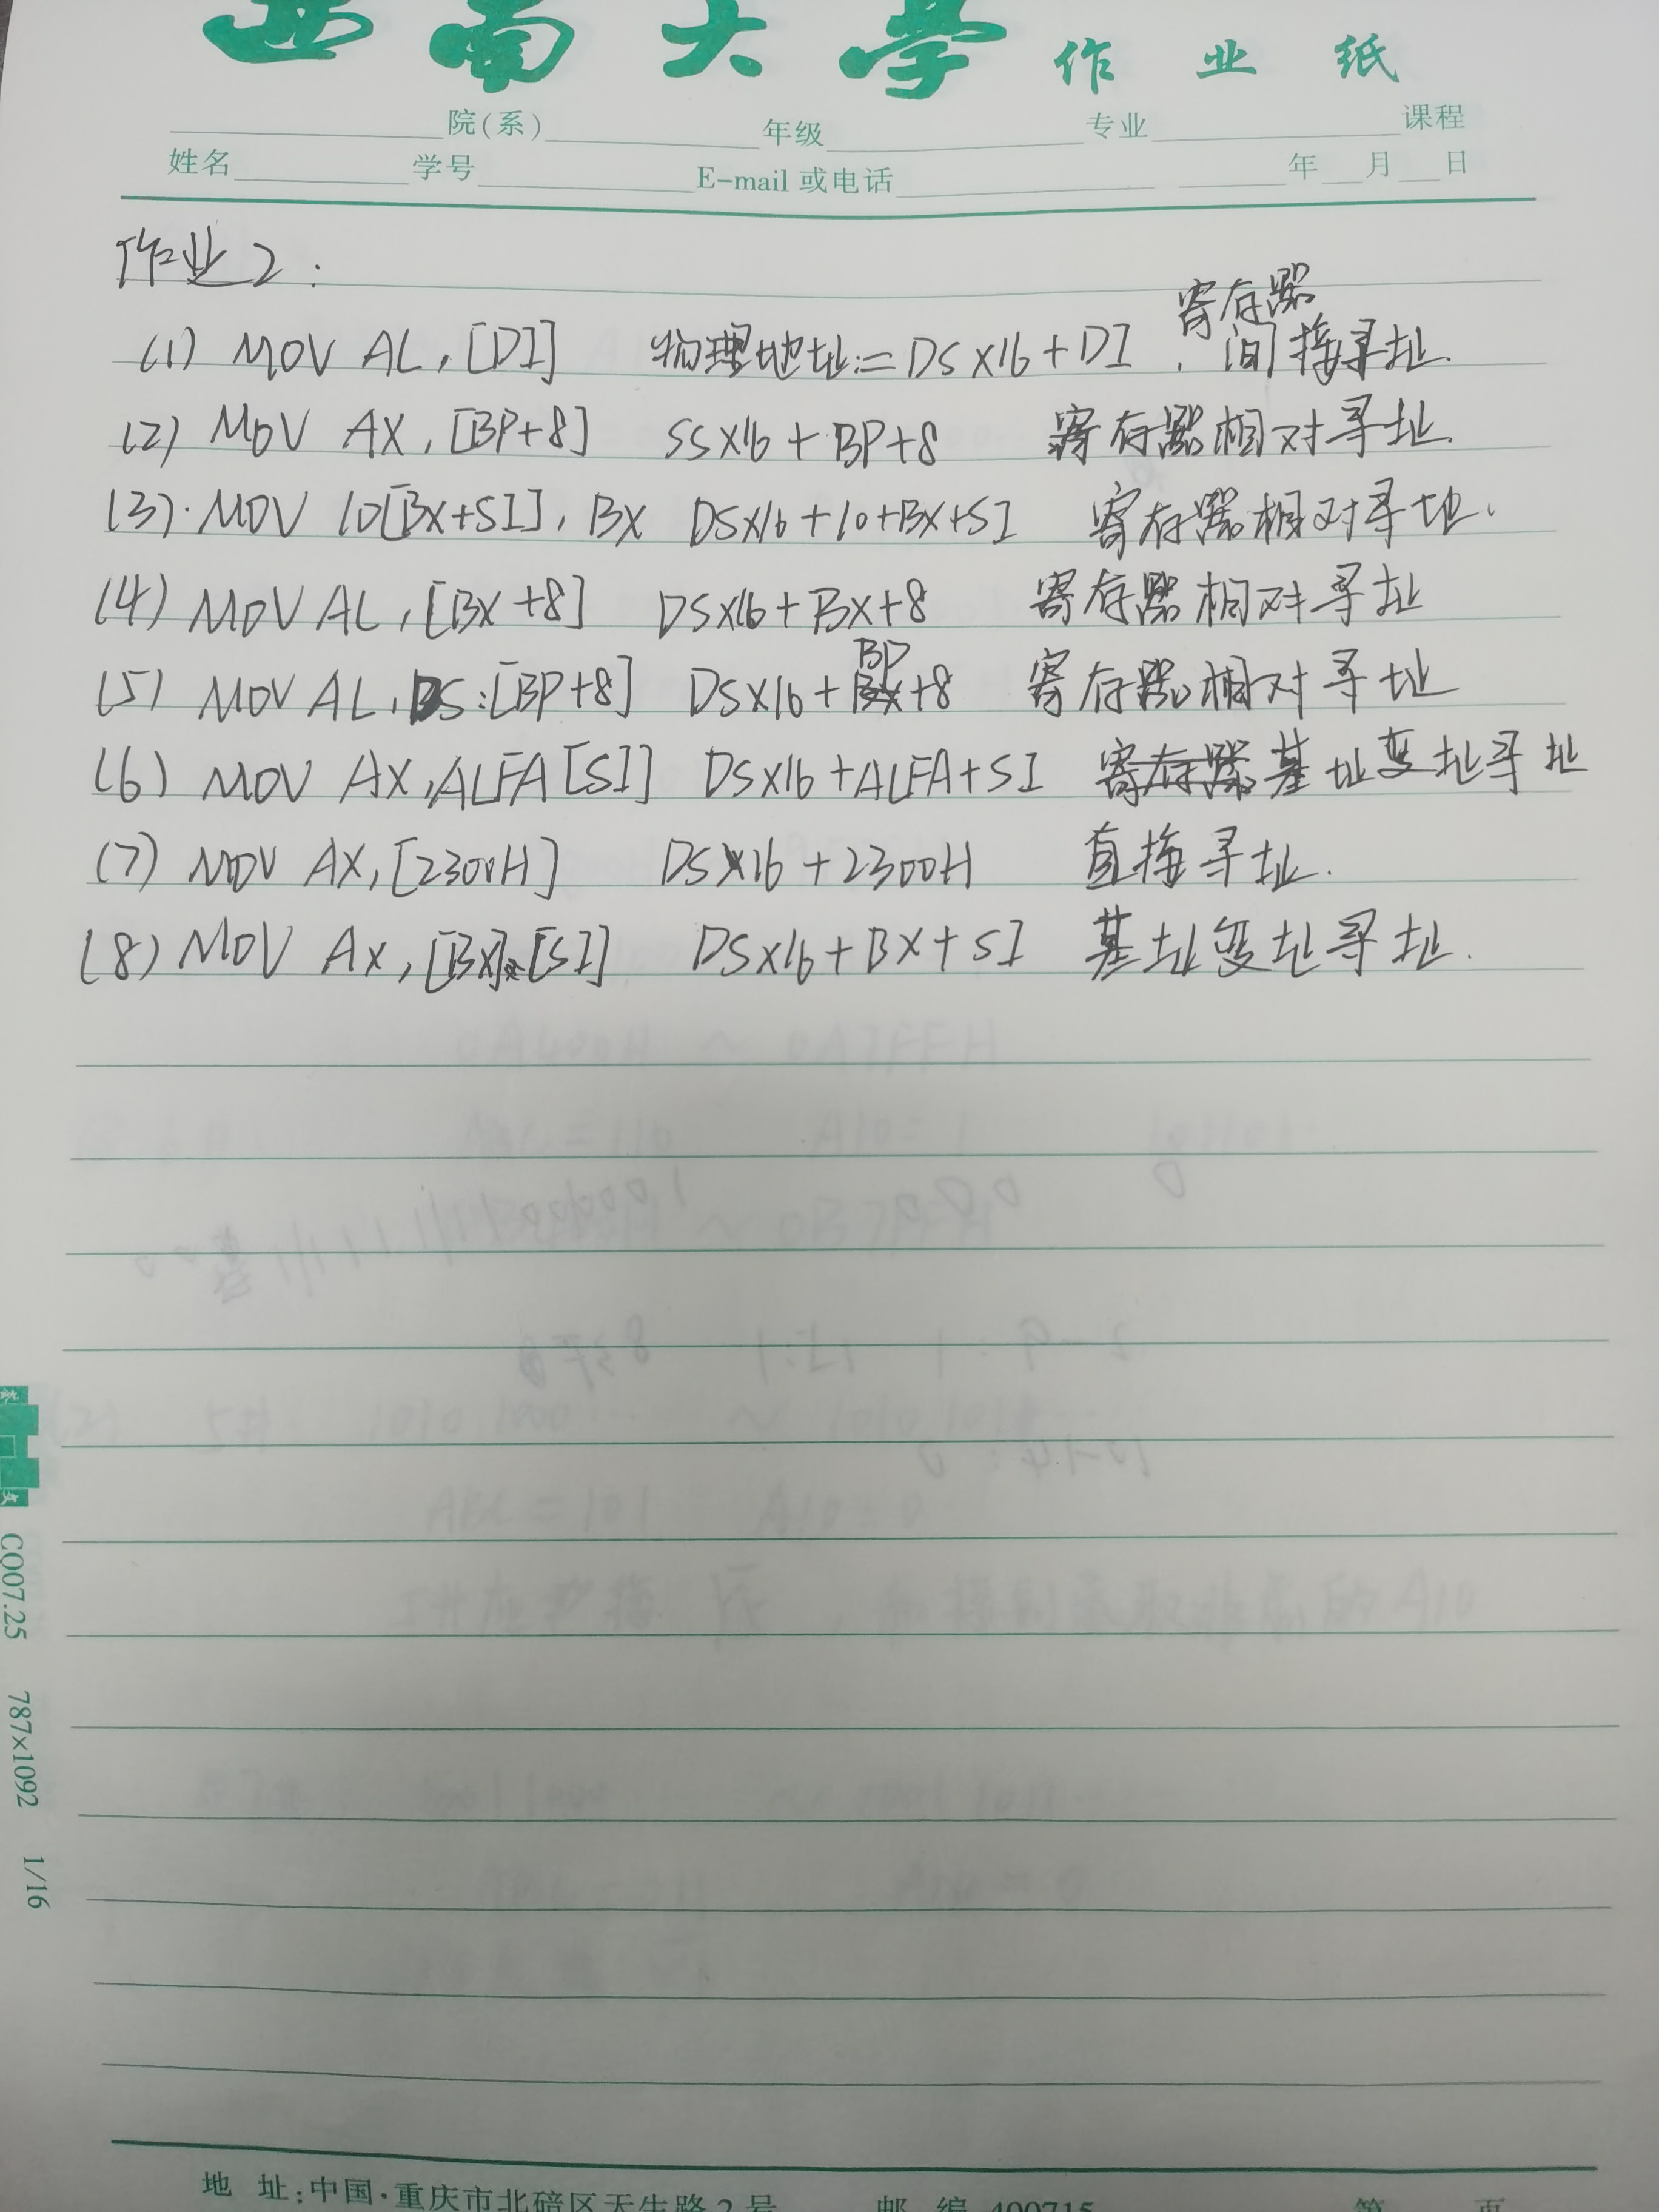 西南大学 作业纸
院(系) 年级 专业 课程
姓名 学号 E-mail 或电话 年 月 日
作业2:
寄存器
(1) MOV AL, [DI] 物理地址:= DS×16+DI , 间接寻址.
(2) MOV AX, [BP+8] SS×16+BP+8 寄存器相对寻址.
(3). MOV 10[BX+SI], BX DS×16+10+BX+SI 寄存器相对寻址.
(4) MOV AL, [BX+8] DS×16+BX+8 寄存器相对寻址
(5) MOV AL, DS:[BP+8] DS×16+BP+8 寄存器相对寻址
(6) MOV AX, ALFA[SI] DS×16+ALFA+SI 寄存器基址变址寻址
(7) MOV AX, [2300H] DS×16+2300H 直接寻址.
(8) MOV AX, [BX][SI] DS×16+BX+SI 基址变址寻址.
CQ07.25 787×1092 1/16
地 址:中国·重庆市北碚区天生路2号 邮 编 400715 第 页